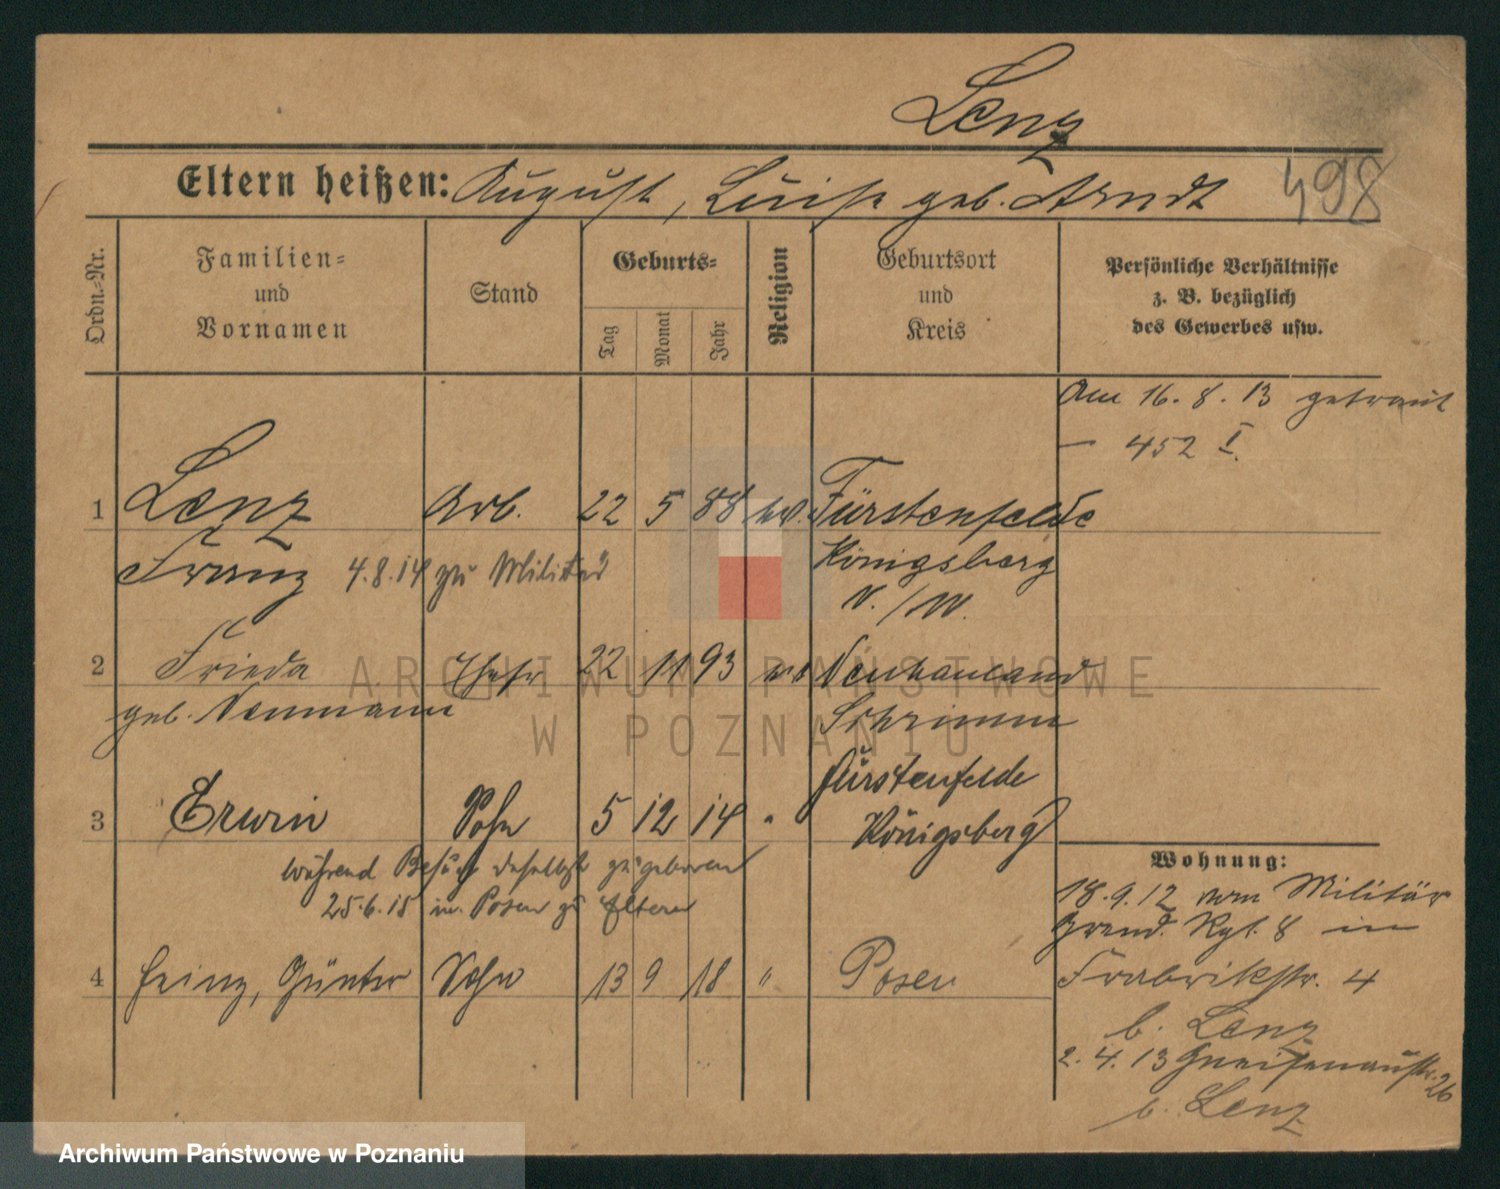 Lenz
Eltern heißen: August, Luise geb. Arndt
498
Ordn.-Nr.
Familien-
und
Vornamen
Stand
Geburts-
Tag
Monat
Jahr
Religion
Geburtsort
und
Kreis
Persönliche Verhältnisse
z. B. bezüglich
des Gewerbes usw.
Am 16.8.13 getraut
— 452 I.
1 Lenz Arb. 22 5 88 ev. Fürstenfelde
Franz 4.8.14 zu Militär Königsberg
N./M.
2 Frieda Ehefr 22 11 93 ev
geb. Neumann Schrimm
Fürstenfelde
3 Erwin Sohn 5 12 14 " Königsberg
während Besuch daselbst geboren
25.6.15 in Posen zu Eltern
4 Heinz, Günter Sohn 13 9 18 " Posen
Wohnung:
18.9.12 vom Militär
Grend. Rgt. 8 in
Frabrikstr. 4
b. Lenz
2.4.13 Gneisenaustr. 26
b. Lenz
ARCHIWUM PAŃSTWOWE
W POZNANIU
Archiwum Państwowe w Poznaniu